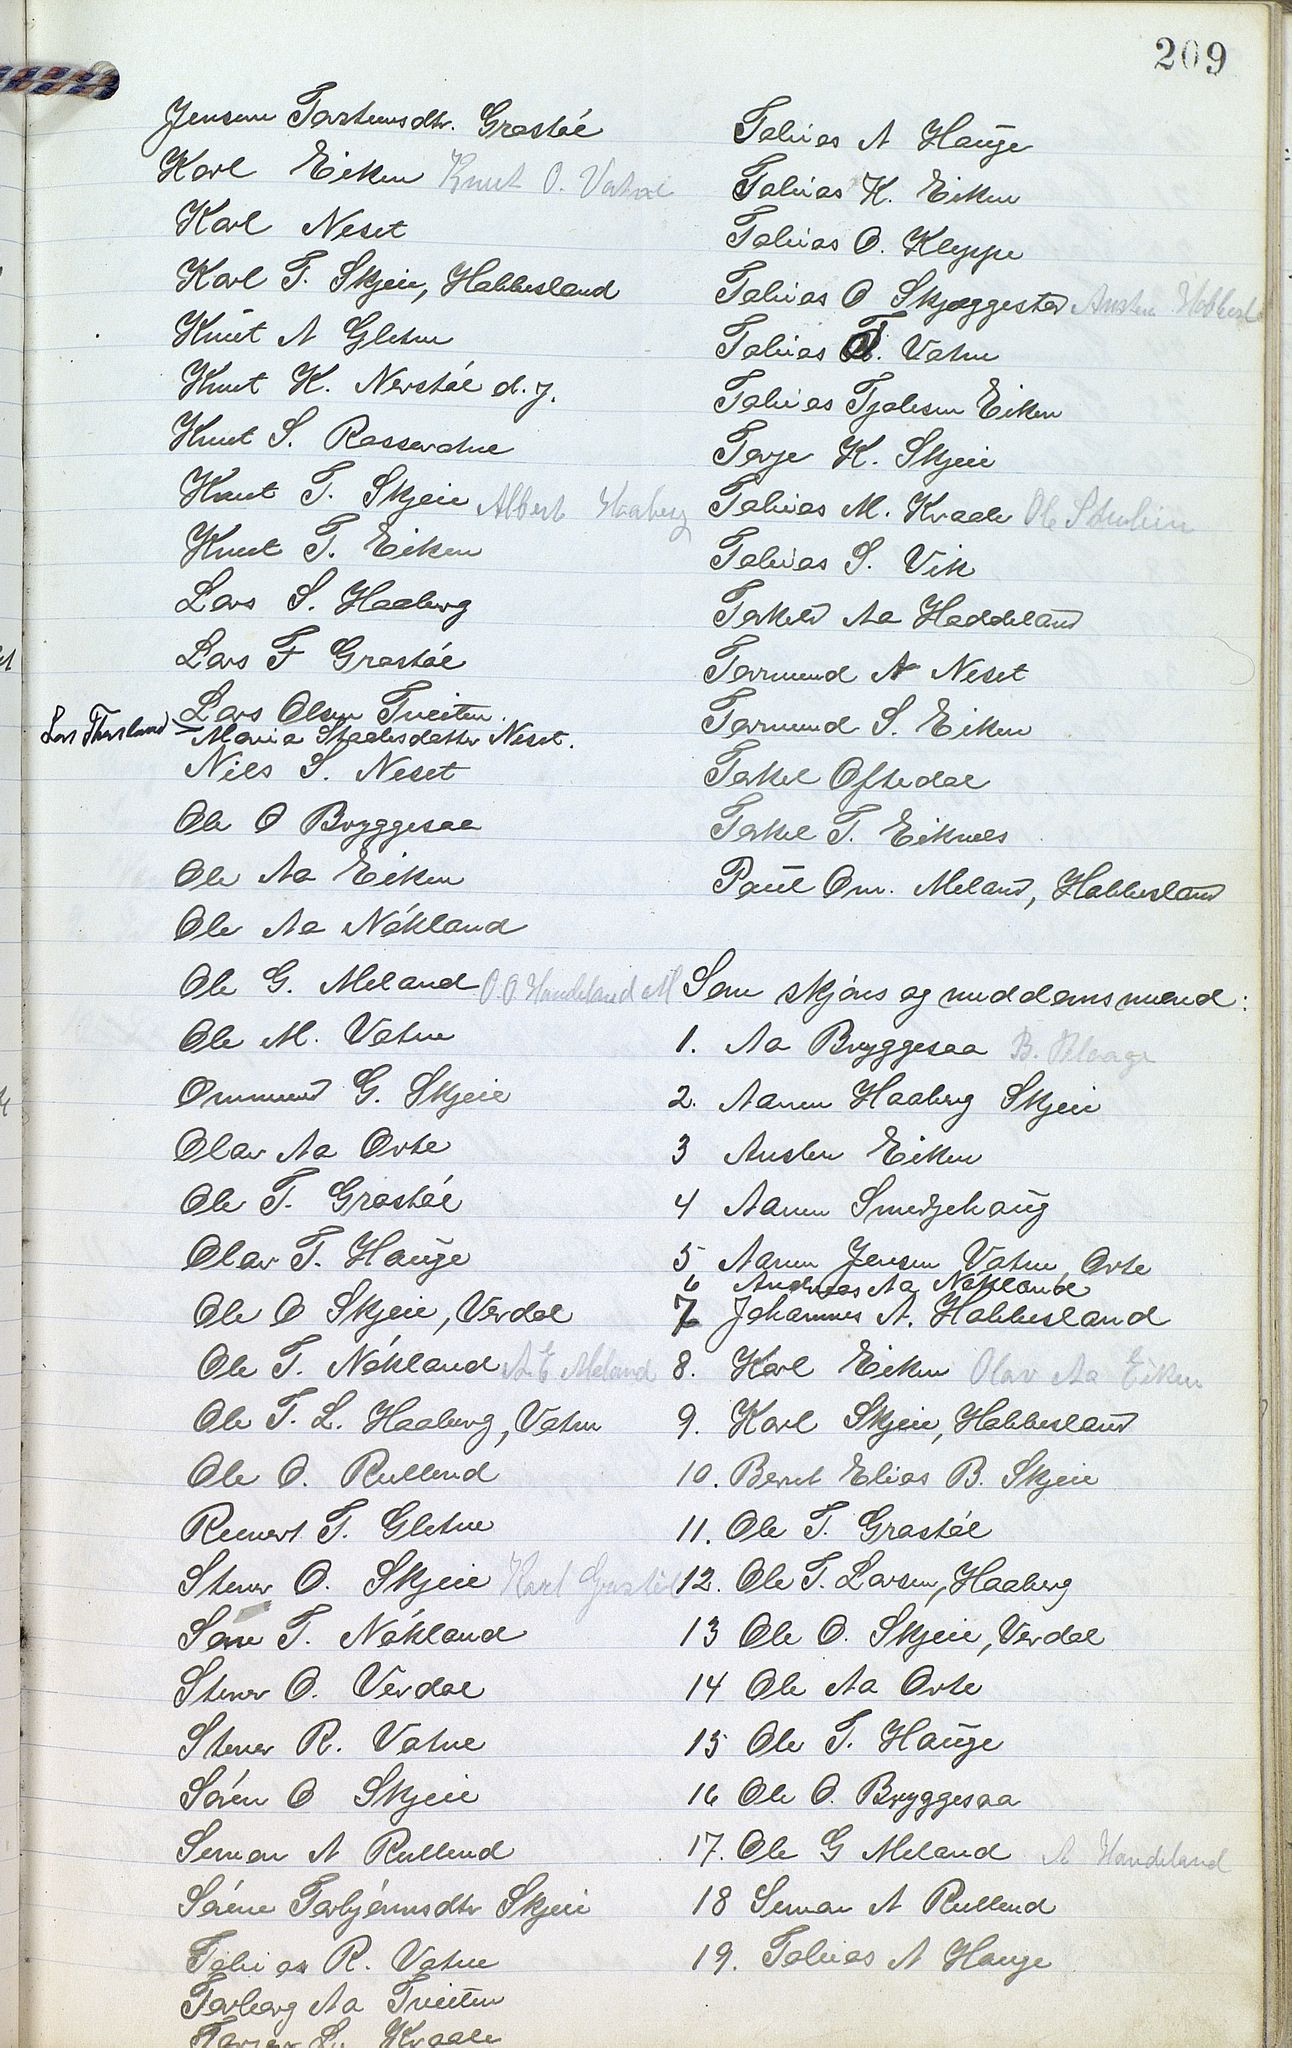 209
Jensine Torstensdtr. Grastøl
Karl Eiken Knut O. Vatne
Karl Neset
Karl T. Skjeie, Habbesland
Knut A Gletne
Knut K. Nerstøl d.y.
Knut S. Rossevatne
Knut T. Skjeie Albert Haaberg
Knut T. Eiken
Lars S. Haaberg
Lars F Grastøl
Lars Olsen Tveiten
Lars Thorsland Maria Staalesdatter Neset.
Nils S. Neset
Ole O Bryggesaa
Ole Aa Eiken
Ole Aa Nökland
Ole G. Meland O.O Handeland M
Ole M. Vatne
Ommund G. Skjeie
Olav Aa Orte
Ole T. Grastøl
Olav T. Hauge
Ole O Skjeie, Verdal
Ole T. Nökland A. E Meland
Ole T. L. Haaberg, Vatne
Ole O. Rullend
Reinert T. Gletne
Stener O. Skjeie Karl Grastöl
Søren T. Nökland
Stener O. Verdal
Stener R. Vatne
Sören O Skjeie
Simon A Rullend
Sörine Torbjörnsdtr Skjeie
Tobias R. Vatne
Torborg Aa Tveiten
L. Kvaale
Tobias A Hauge
Tobias K. Eiken
Tobias O. Kleppe
Tobias O Skjeggestad Austen Hobbesl
Tobias T. Vatne
Tobias Tjalesen Eiken
Terje K. Skjeie
Tobias M. Kvaale Ole
Tobias S. Vik
Torkeld Aa Haddeland
Tormund A Neset
Tormund S. Eiken
Torkel Oftedal
Torkel T. Eiknes
Paul Om. Meland, Habbesland
Som skjöns og meddomsmænd:
1. Aa Bryggesaa B.
2. Aanen Haaberg Skjeie
3 Austen Eiken
4 Aanen Smedjehaug
5 Aanen Jensen Vatne Orte
6 Andreas Aa Nökland
7 Johannes A. Habbesland
8. Karl Eiken Olav Aa Eiken
9. Karl Skjeie, Habbesland
10. Bernt Elias B. Skjeie
11. Ole T. Grastøl
12. Ole T. Larsen, Haaberg
13 Ole O. Skjeie, Verdal
14 Ole Aa Orte
15 Ole T. Hauge
16 Ole O. Bryggesaa
17. Ole G Meland A Handeland
18 Simon A Rullend
19. Tobias A Hauge